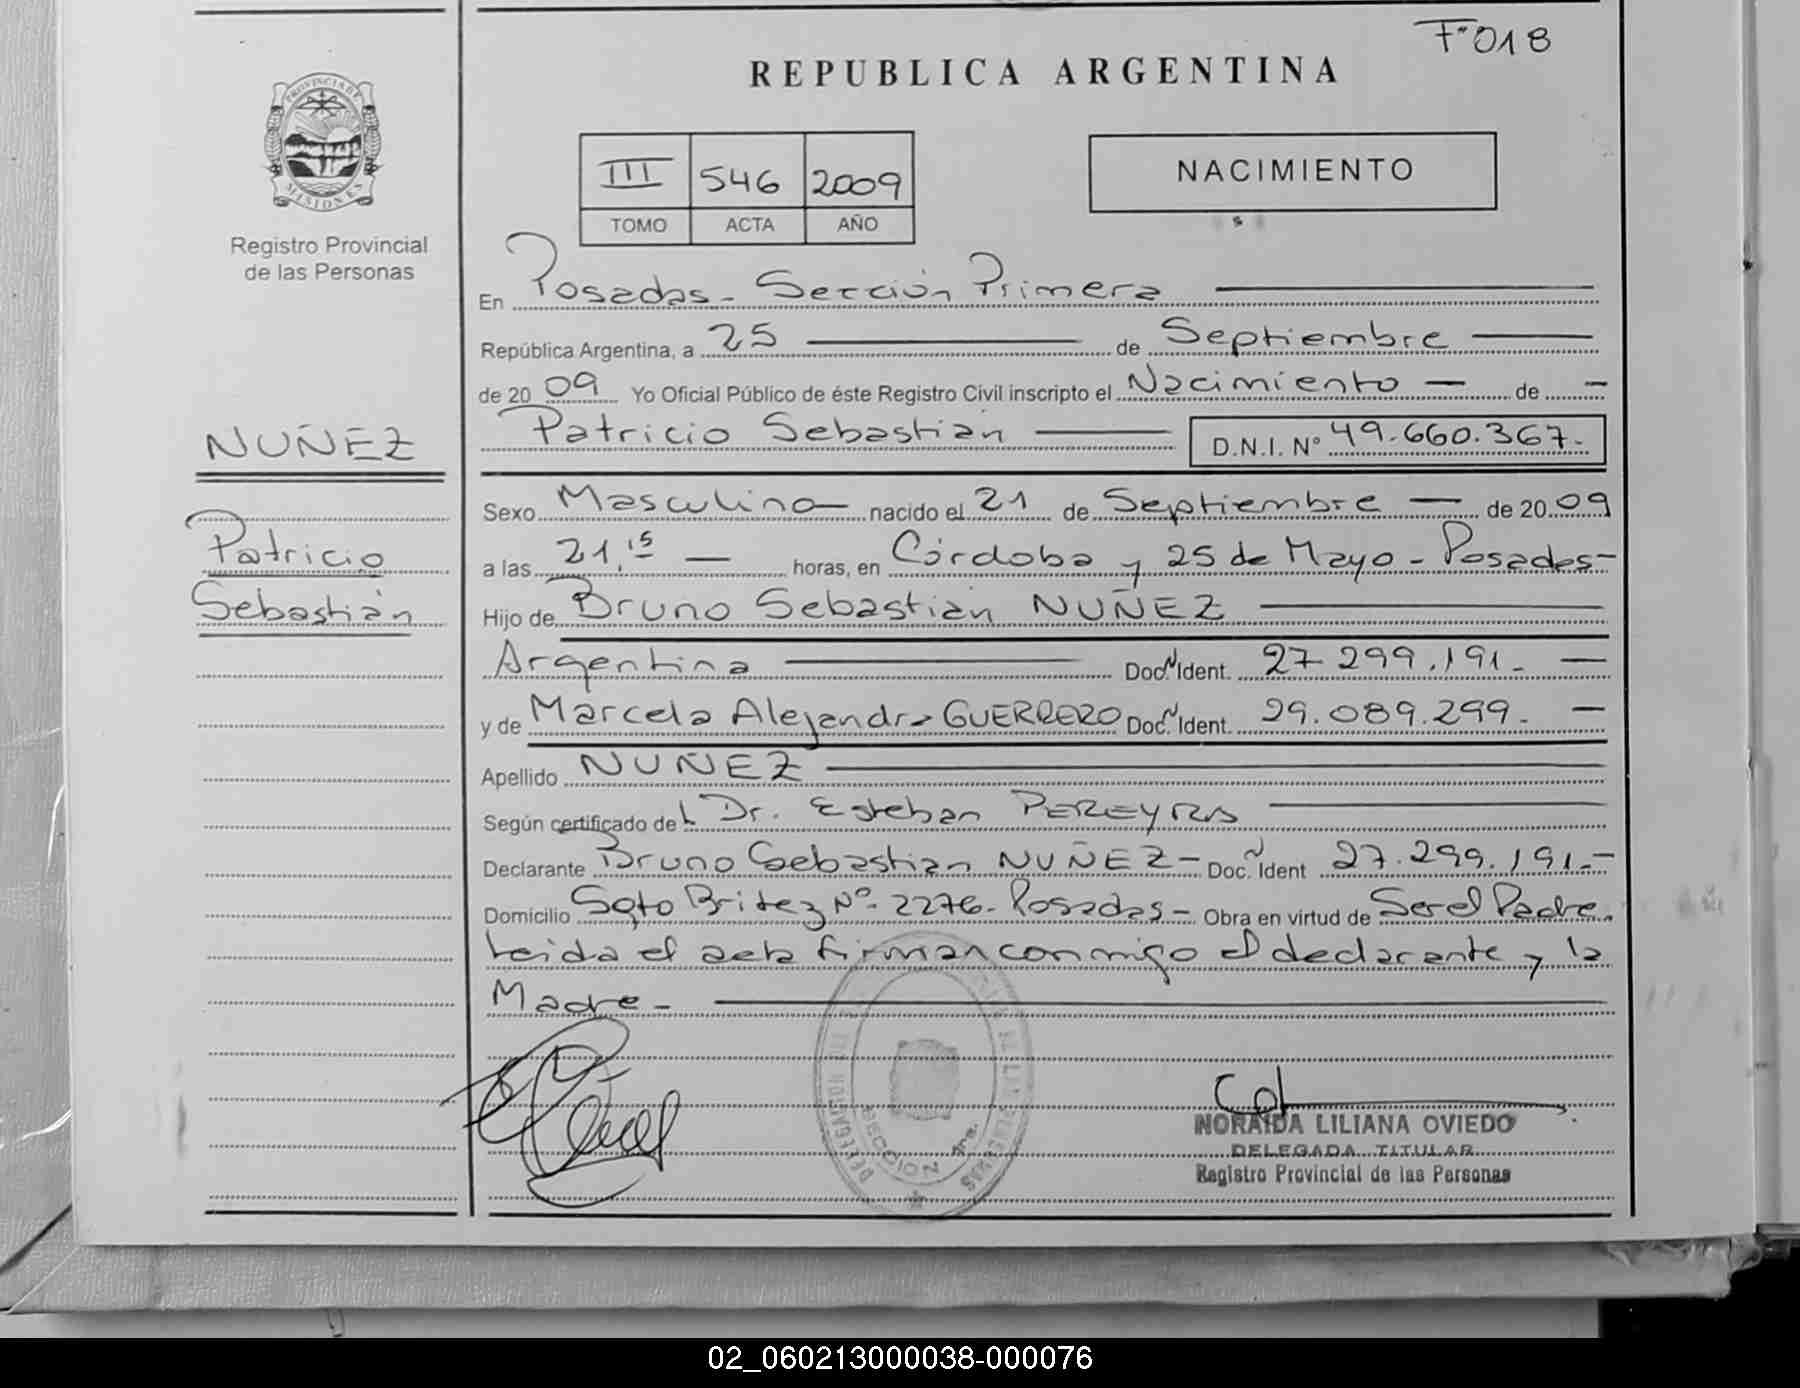 F°018
REPUBLICA ARGENTINA
PROVINCIA DE
MISIONES
Registro Provincial
de las Personas
III 546 2009
TOMO ACTA AÑO
NACIMIENTO
En Posadas - Sección Primera
República Argentina, a 25 de Septiembre
de 2009 Yo Oficial Público de éste Registro Civil inscripto el Nacimiento — de —
Patricio Sebastián D.N.I. Nº 49.660.367.-
NUÑEZ
Patricio
Sebastián
Sexo Masculino nacido el 21 de Septiembre — de 2009
a las 21,15 — horas, en Córdoba y 25 de Mayo - Posadas-
Hijo de Bruno Sebastián NUÑEZ
Argentina Doc. Ident. 27.299.191.-
y de Marcela Alejandra GUERRERO Doc. Ident. 29.089.299.-
Apellido NUÑEZ
Según certificado del Dr. Esteban PEREYRA
Declarante Bruno Sebastián NUÑEZ - Doc. Ident 27.299.191.-
Domicilio Sgto Britez Nº 2276 - Posadas - Obra en virtud de Ser el Padre.
Leida el acta firman conmigo el declarante y la
Madre -
SECCION 1ra.
NORAIDA LILIANA OVIEDO
DELEGADA TITULAR
Registro Provincial de las Personas
02_060213000038-000076